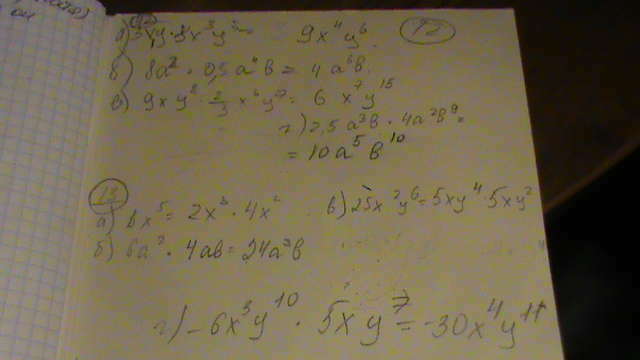 12
9x⁴y⁶
б) 8a² · 0,5a⁴b = 4a⁶b.
в) 9xy⁸ · 2/3 x⁶y⁷ = 6x⁷y¹⁵
г) 2,5a³b · 4a²b⁹ =
= 10a⁵b¹⁰
13
а) 8x⁵ = 2x³ · 4x²
в) 25x²y⁶ = 5xy⁴ · 5xy²
б) 6a² · 4ab = 24a³b
г) -6x³y¹⁰ · 5xy⁷ = -30x⁴y¹⁷